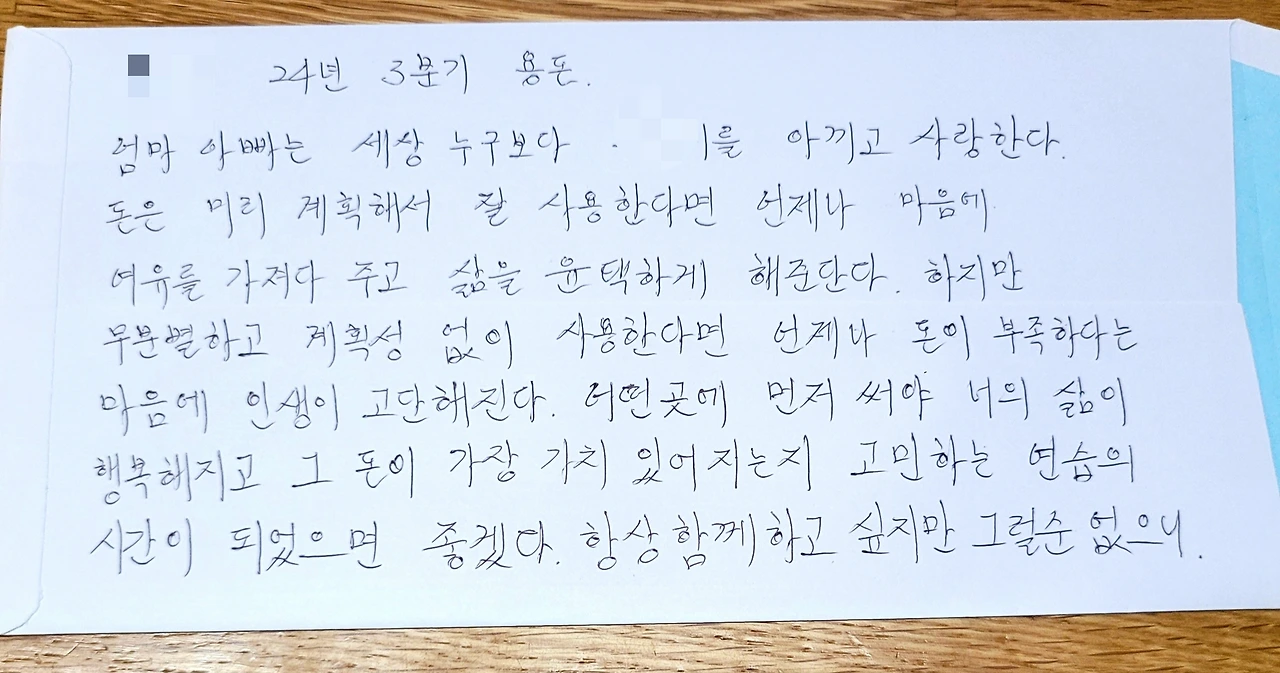 24년 3분기 용돈.
엄마 아빠는 세상 누구보다 를 아끼고 사랑한다.
돈은 미리 계획해서 잘 사용한다면 언제나 마음에
여유를 가져다 주고 삶을 윤택하게 해준단다. 하지만
무분별하고 계획성 없이 사용한다면 언제나 돈이 부족하다는
마음에 인생이 고단해진다. 어떤곳에 먼저 써야 너의 삶이
행복해지고 그 돈이 가장 가치 있어지는지 고민하는 연습의
시간이 되었으면 좋겠다. 항상 함께하고 싶지만 그럴준 없으니.